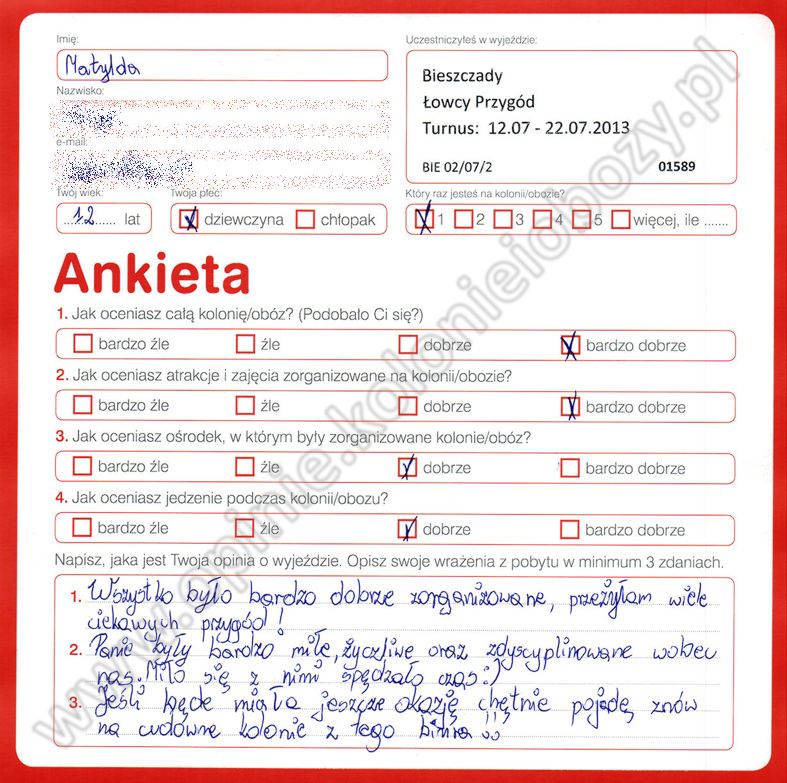 Imię:
Matylda
Nazwisko:
e-mail:
Twój wiek:
12 lat
Twoja płeć:
dziewczyna chłopak
Uczestniczyłeś w wyjeździe:
Bieszczady
Łowcy Przygód
Turnus: 12.07 - 22.07.2013
BIE 02/07/2 01589
Który raz jesteś na kolonii/obozie?
1 2 3 4 5 więcej, ile .......
Ankieta
1. Jak oceniasz całą kolonię/obóz? (Podobało Ci się?)
bardzo źle źle dobrze bardzo dobrze
2. Jak oceniasz atrakcje i zajęcia zorganizowane na kolonii/obozie?
bardzo źle źle dobrze bardzo dobrze
3. Jak oceniasz ośrodek, w którym były zorganizowane kolonie/obóz?
bardzo źle źle dobrze bardzo dobrze
4. Jak oceniasz jedzenie podczas kolonii/obozu?
bardzo źle źle dobrze bardzo dobrze
Napisz, jaka jest Twoja opinia o wyjeździe. Opisz swoje wrażenia z pobytu w minimum 3 zdaniach.
1. Wszystko było bardzo dobrze zorganizowane, przeżyłam wiele
ciekawych przygód!
2. Panie były bardzo miłe, życzliwe oraz zdyscyplinowane wobec
nas. Miło się z nimi spędzało czas :)
3. Jeśli będe miała jeszcze okazję chętnie pojadę znów
na cudowne kolonie z tego biura !!
www.opinie.kolonieiobozy.pl